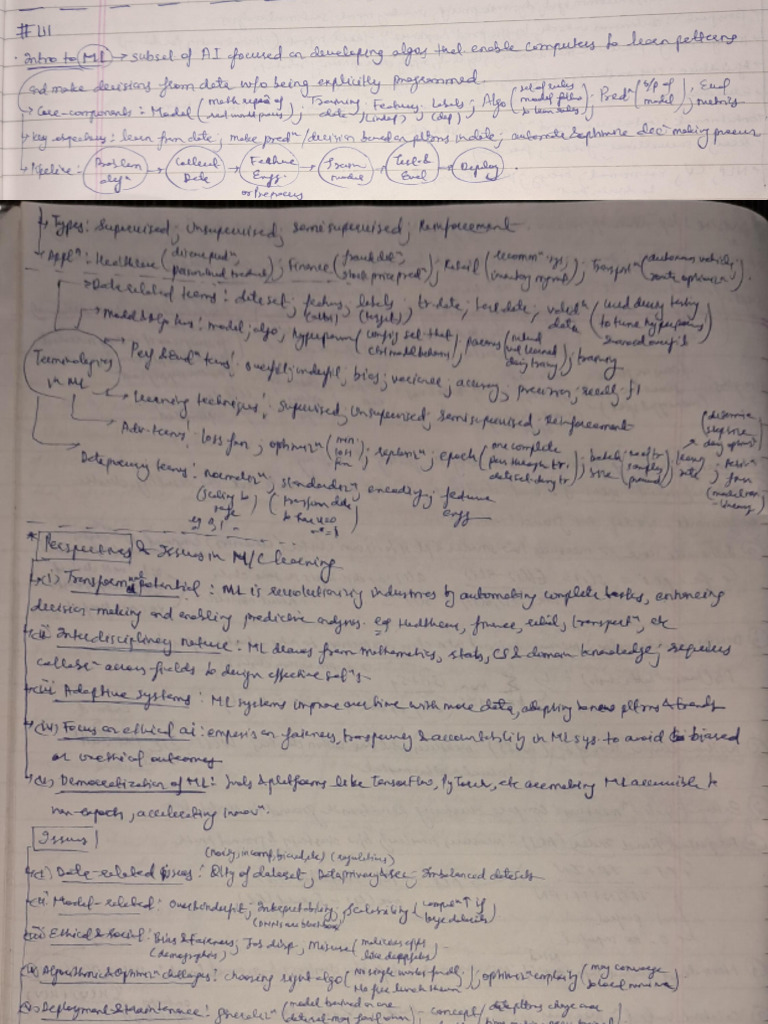 # UI
· Intro to ML → subset of AI focused on developing algos that enable computers to learn patterns
and make decisions from data w/o being explicitly programmed.
→ Core-components : Model (math repsn of real world process); Training data; Features (indep); Labels (dep); Algo (set of rules model follows to learn rules); Predⁿ (o/p of model); Eval metrics
→ Key objectives : learn from data; make predⁿ/decision based on pttrns in data; automate & optimize decⁿ making process
→ Pipeline : Problem → Collect Data → Feature Engg. → Train model → Test & Eval → Deploy
or Preprocess
→ Types : Supervised; Unsupervised; semisupervised; Reinforcement
→ Applⁿ : Healthcare ( ); Finance (fraud detⁿ, stock price predⁿ); Retail (recommⁿ sys, inventory mgmt); Transptⁿ (autonomous vehicles, route optimizⁿ).
Terminologies in ML
→ Data related terms : dataset; features; labels (targets); tr. data; test data; validⁿ data (used during testing to tune hyperparams & avoid overfit)
→ Model & Algo terms : model; algo; hyperparam (config set that ctrl model behaviour); params (internal learned during training); training
→ Perf & Eval terms : overfit; underfit; bias; variance; accuracy; precision; recall; f1
→ Learning techniques : Supervised; Unsupervised; Semisupervised; Reinforcement
Adv. terms : loss fun; optimizⁿ (min loss fun); regularizⁿ; epoch (one complete pass through tr. dataset during tr.); batch size (no. of tr. samples processed); learning rate (determine step size during optimizⁿ); Activⁿ funⁿ
Data preproc terms : normalizⁿ (scaling to range eg 0,1); standardizⁿ (transform data to have ); encoding; feature engg
* Perspectives & Issues in M/C learning
→ (i) Transformative potential : ML is revolutionizing industries by automating complete tasks, enhancing
decision-making and enabling predictive analysis. eg Healthcare, finance, retail, transportⁿ, etc
→ (ii) Interdisciplinary nature : ML draws from mathematics, stats, CS & domain knowledge; requires
collabⁿ across fields to design effective solⁿs.
→ (iii) Adaptive systems : ML systems improve over time with more data, adapting to new pttrns & trends
→ (iv) Focus on ethical ai : emphasis on fairness, transparency & accountability in ML sys. to avoid biased
or unethical outcomes
→ (v) Democratization of ML : tools & platforms like TensorFlow, PyTorch, etc are making ML accessible to
non-experts, accelerating innovⁿ.
Issues
(noisy, incomp, biased, etc) (regulations)
→ (i) Data-related issues : Qlty of dataset; Data privacy & sec; Imbalanced datasets
→ (ii) Model-related : Over & underfit; Interpretability; Scalability (compⁿ ↑ if large datasets)
→ (iii) Ethical & Social : Bias & Fairness (demographics); Job disp; Misuse (malicious apps like deepfakes)
→ (iv) Algorithmic & Optimizⁿ challenges : choosing right algo (no single works for all, No free lunch theorem); optimizⁿ complexity (may converge to local minima)
→ (v) Deployment & Maintenance : generalizⁿ (model trained on one dataset may fail on other); concept/ (data pttrns change over